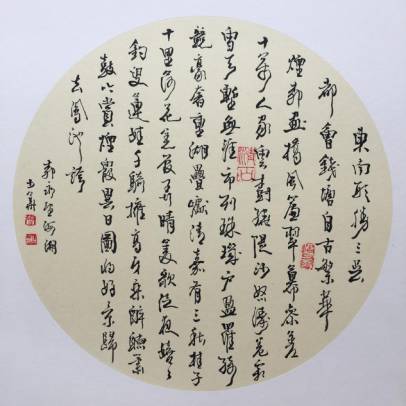 東南形勝三吳
都會錢塘自古繁華
煙柳画橋風簾翠幕參差
十萬人家雲樹繞堤沙怒濤卷霜
雪天塹無涯市列珠璣戶盈羅綺
競豪奢重湖疊巘清嘉有三秋桂子
十里荷花羌管弄晴菱歌泛夜嬉々
釣叟蓮娃千騎擁高牙乘醉聽簫
鼓吟賞煙霞異日圖將好景歸
去鳳池誇
柳永望海潮